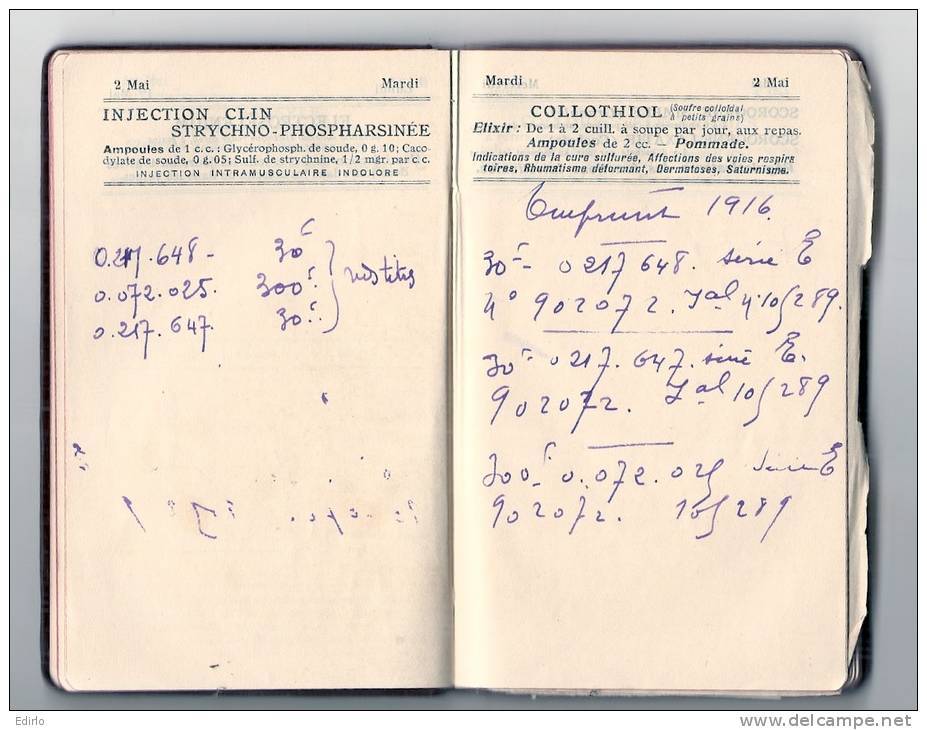 2 Mai Mardi
INJECTION CLIN
STRYCHNO-PHOSPHARSINÉE
Ampoules de 1 c.c. : Glycérophosph. de soude, 0 g. 10; Caco-
dylate de soude, 0 g. 05; Sulf. de strychnine, 1/2 mgr. par c.c.
INJECTION INTRAMUSCULAIRE INDOLORE
0.217.648 - 30 f
0.072.025. 300 f
0.217.647. 30 f
Mardi 2 Mai
COLLOTHIOL (Soufre colloïdal à petits grains)
Elixir : De 1 à 2 cuill. à soupe par jour, aux repas.
Ampoules de 2 cc. Pommade.
Indications de la cure sulfurée, Affections des voies respira
toires, Rhumatisme déformant, Dermatoses, Saturnisme.
Emprunt 1916.
30 f - 0217648. série E
4° 902072. Jal 4.105289.
30 f 0217.647. série E.
902072. Jal 105289
300 f 0.072.025 série E
902072. 105289
Edirlo
http://www.delcampe.net